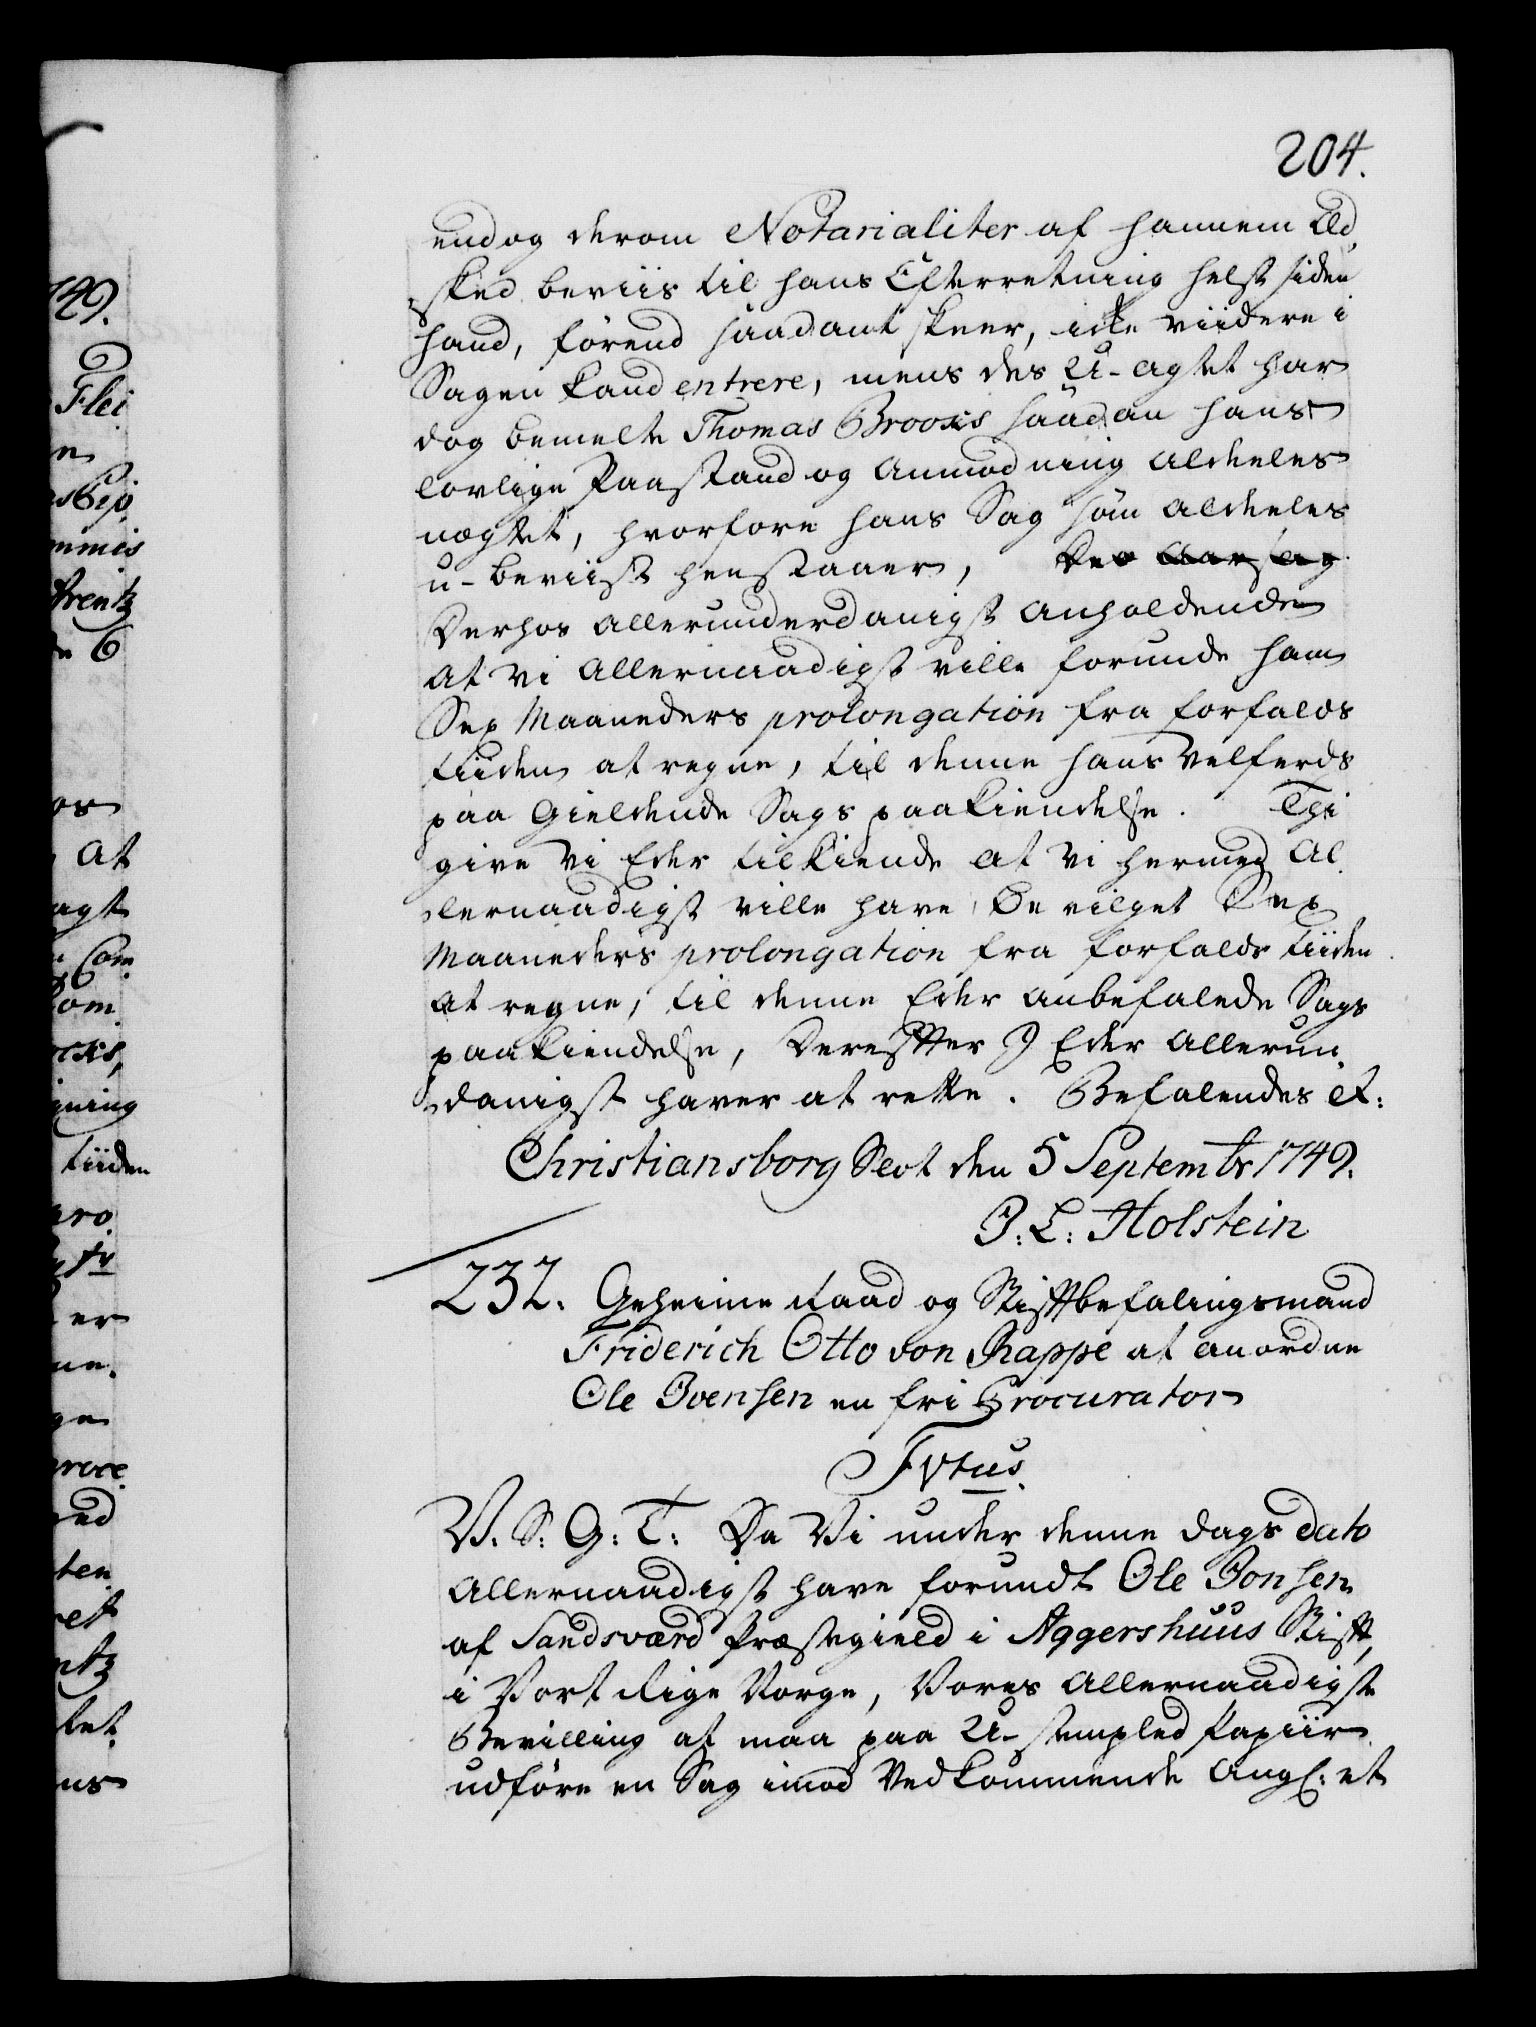 204.
endog derom Notarialiter af hannem Æd
sked beviis til hans Efterretning helst siden
hand, förend saadant skeer, icke viidere i
Sagen kand entrere, mens des U-agtet har
dog bemelte Thomas Brooks saadan hans
lovlige Paastand og Anmodning aldeles
nægtet, hvorfore hans Sag som aldeles
u-beviist henstaaer,
Derhos allerunderdanigst anholdende
at Vi allernaadigst ville forunde ham
Sex Maaneders prolongation fra forfalds
tiiden at regne, til denne hans Velferds
paa Gieldende Sags paakiendelse. Thi
give Vi Eder tilkiende at Vi hermed Al
lernaadigst ville have Bevilget Sex
Maaneders prolongation fra forfalds tiiden
at regne, til denne Eder anbefalede Sags
paakiendelse, Derefter I Eder Allerun
danigst haver at rette. Befalendes et:
Christiansborg Slot den 5 Septembr 1749.
J: L: Holstein
232. Geheime Raad og Stiftbefalingsmand
Friderich Otto von Rappe at anordne
Ole Ivensen en fri Procurator
Frtus.
V. S: G: T: Da Vi under denne Dags dato
Allernaadigst have forundt Ole Jonsen
af Sandsværd Præstegield i Aggershuus Stift,
i Vort Rige Norge, Vores Allernaadigste
Bevilling at maa paa U-stemplet Papiir
udföre en Sag imod Vedkommende Angl: et